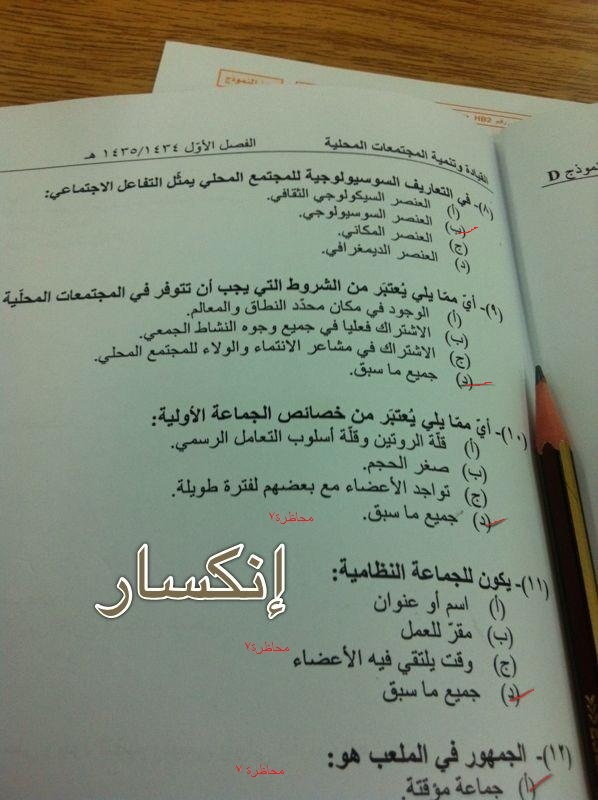 النموذج
HB2
نموذج D
القيادة وتنمية المجتمعات المحلية
الفصل الأول ١٤٣٥/١٤٣٤ هـ
(٨)- في التعاريف السوسيولوجية للمجتمع المحلي يمثّل التفاعل الاجتماعي:
(أ) العنصر السيكولوجي الثقافي.
(ب) العنصر السوسيولوجي.
(ج) العنصر المكاني.
(د) العنصر الديمغرافي.
(٩)- أيّ ممّا يلي يُعتبَر من الشروط التي يجب أن تتوفر في المجتمعات المحلّية
(أ) الوجود في مكان محدّد النطاق والمعالم.
(ب) الاشتراك فعليا في جميع وجوه النشاط الجمعي.
(ج) الاشتراك في مشاعر الانتماء والولاء للمجتمع المحلي.
(د) جميع ما سبق.
(١٠)- أيّ ممّا يلي يُعتبَر من خصائص الجماعة الأولية:
(أ) قلّة الروتين وقلّة أسلوب التعامل الرسمي.
(ب) صغر الحجم.
(ج) تواجد الأعضاء مع بعضهم لفترة طويلة.
(د) جميع ما سبق.
محاظرة٧
إنكسار
(١١)- يكون للجماعة النظامية:
(أ) اسم أو عنوان
(ب) مقرّ للعمل
محاظرة٧
(ج) وقت يلتقي فيه الأعضاء
(د) جميع ما سبق
(١٢)- الجمهور في الملعب هو:
محاظرة ٧
(أ) جماعة مؤقتة.